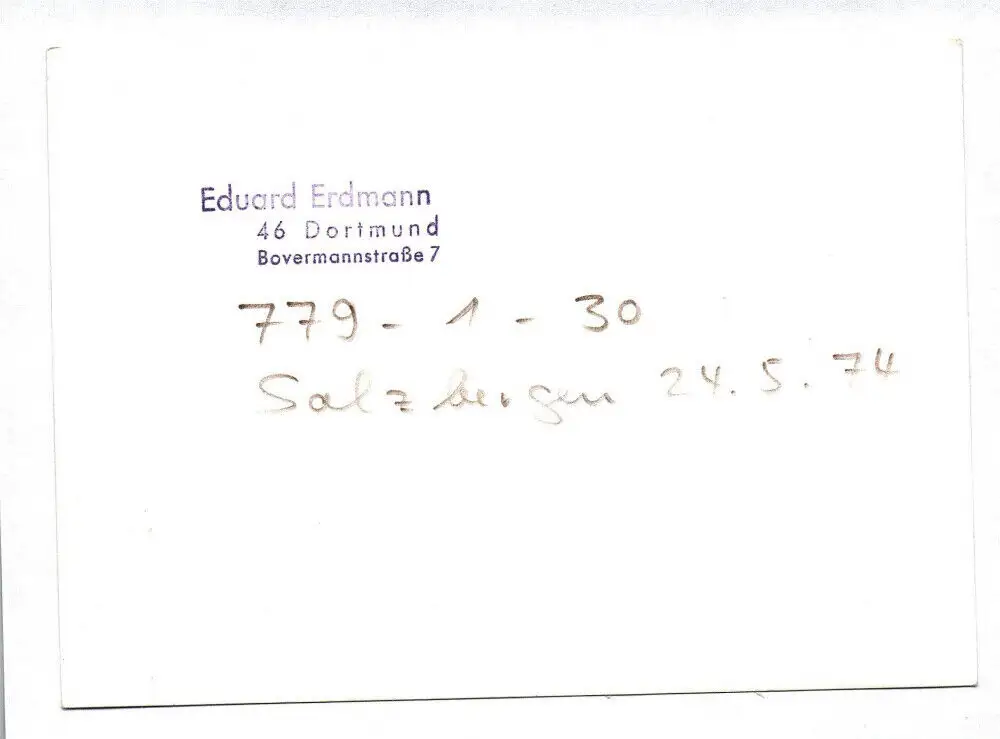 Eduard Erdmann
46 Dortmund
Bovermannstraße 7
779 - 1 - 30
Salzbergen 24. 5. 74